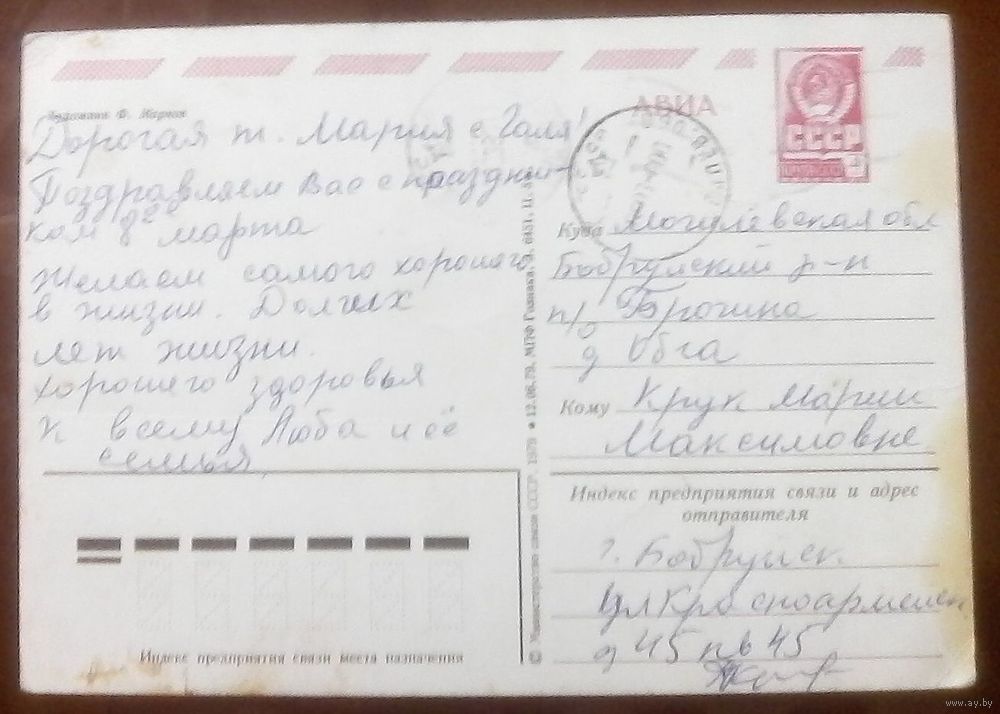 Художник Ф. Марков
АВИА
СССР
Дорогая т. Мария с Галя!
Поздравляем Вас с праздни-
ком 8ое марта
Желаем самого хорошего
в жизни. Долгих
лет жизни.
хорошего здоровья
К всему Люба и её
семья
Куда Могилевская обл
Бобруйский р-н
п/о Брожина
д Обга
Кому Крук Марии
Максимовне
Индекс предприятия связи и адрес
отправителя
г. Бобруйск.
ул Красноармейск
д 45 кв 45
Индекс предприятия связи места назначения
© Министерство связи СССР. 1979 • 12.06.79. МПФ Гознака.
www.ay.by